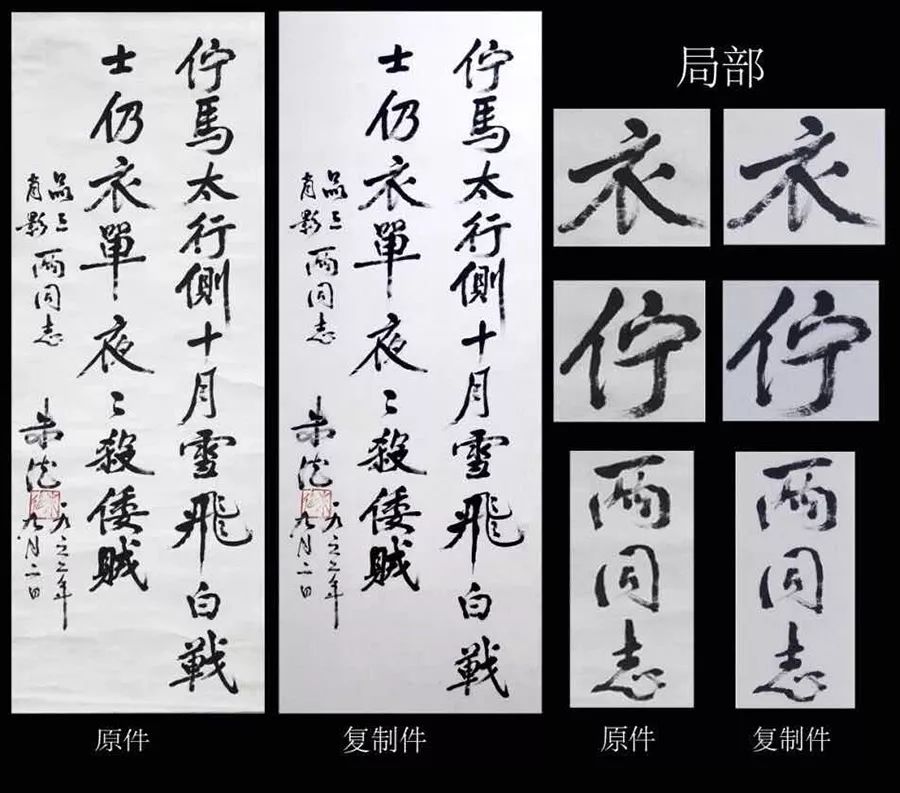 佇馬太行側十月雪飛白戰
士仍衣單夜〻殺倭賊
品三
肖影
兩同志
朱德
一九六二年
九月二日
原件
佇馬太行側十月雪飛白戰
士仍衣單夜〻殺倭賊
品三
肖影
兩同志
朱德
一九六二年
九月二日
复制件
局部
衣
衣
佇
佇
兩同志
兩同志
原件
复制件